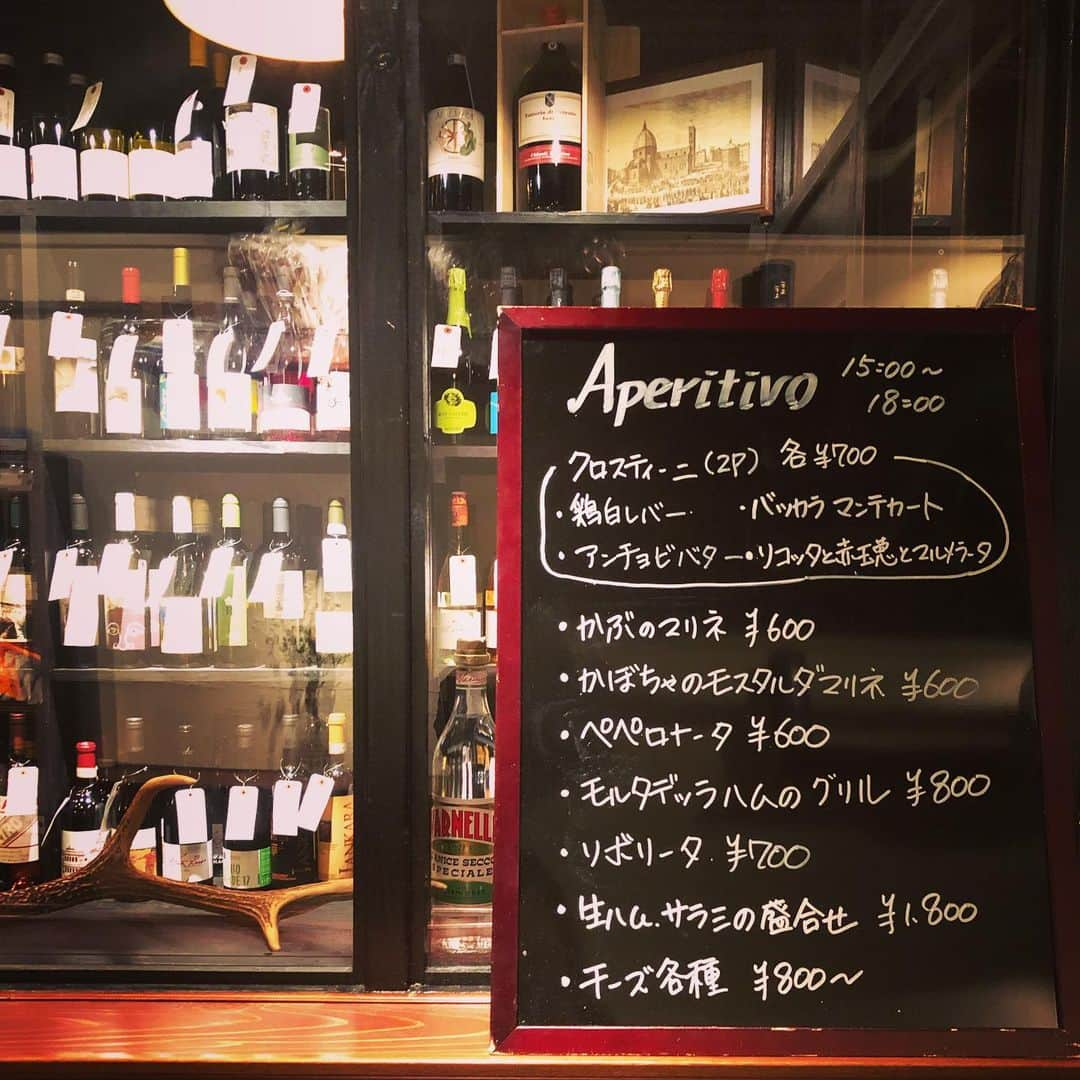 Aperitivo 15:00〜
18:00
クロスティーニ(2P) 各¥700
・鶏白レバー ・バッカラ マンテカート
・アンチョビバター ・リコッタと赤玉葱とマルメラータ
・かぶのマリネ ¥600
・かぼちゃのモスタルダマリネ ¥600
・ペペロナータ ¥600
・モルタデッラハムのグリル ¥800
・リボリータ ¥700
・生ハム、サラミの盛合せ ¥1,800
・チーズ各種 ¥800〜
VARNELLI
ANICE SECCO
SPECIALE